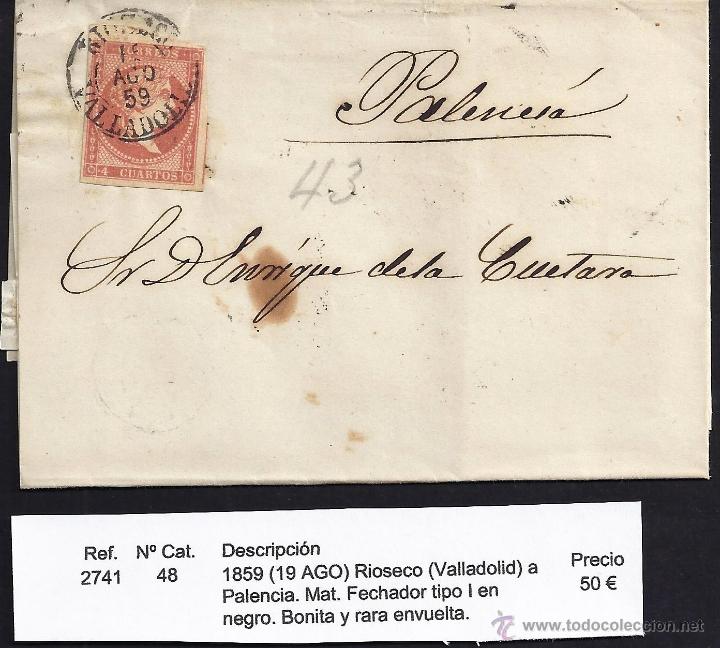 RIOSECO
19
AGO
59
VALLADOLID
4 CUARTOS
Palencia
43
Sr D Enrique de la Cuetara
Ref. Nº Cat. Descripción Precio
2741 48 1859 (19 AGO) Rioseco (Valladolid) a 50 €
Palencia. Mat. Fechador tipo I en
negro. Bonita y rara envuelta.
www.todocoleccion.net